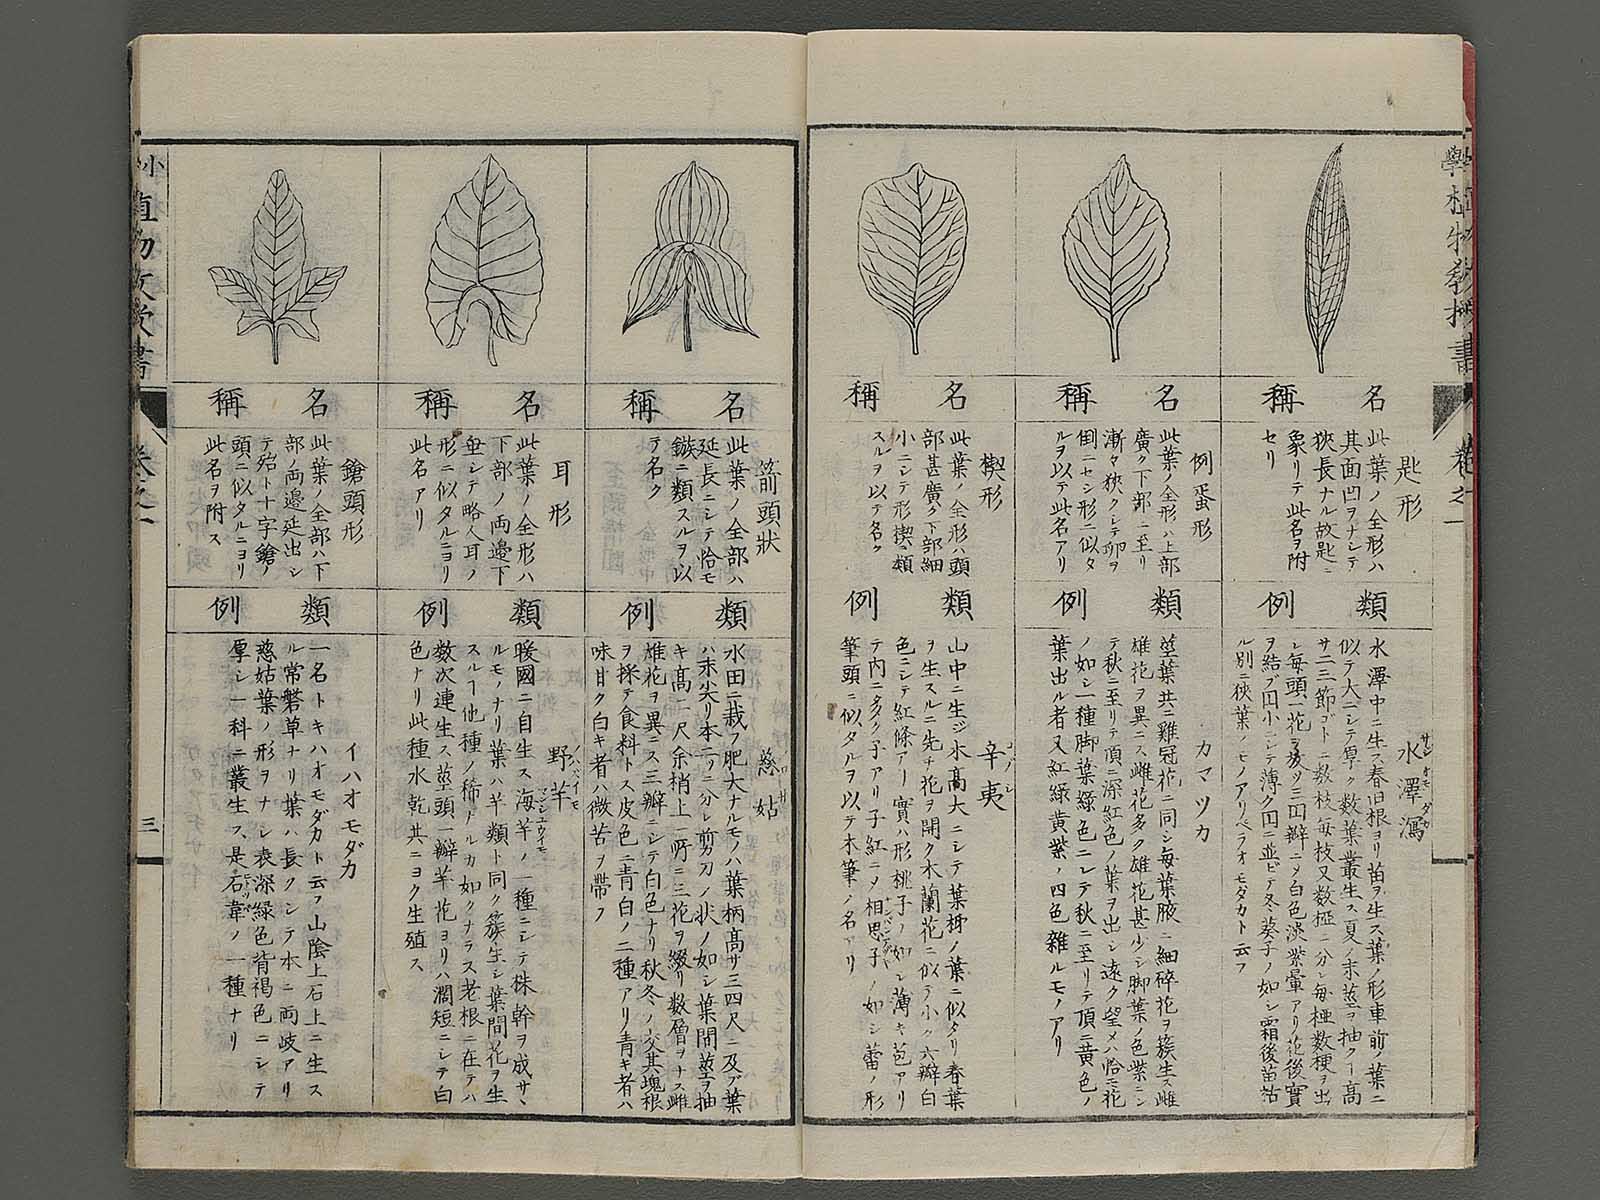 小學植物教授書
卷之一
名稱
匙形
此葉ノ全形ハ
其面凹ヲナシテ
狹長ナル故匙ニ
象リテ此名ヲ附
セリ
類例
水澤瀉
水澤中ニ生ス春旧根ヨリ苗ヲ生ス葉ノ形車前ノ葉ニ
似テ大ニシテ厚ク数葉叢生ス夏ノ末莖ヲ抽クー高
サ二三節ゴトニ数枝每枝又数椏ニ分シ每椏数梗ヲ出
シ每頭一花ヲ發ツ三凹瓣ニメ白色淡紫暈アリ花後實
ヲ結ブ凹小ニシテ薄ク凹ニ並ビテ冬葵子ノ如シ霜後苗枯
ル別ニ狹葉ノモノアリヘラオモダカト云フ
名稱
倒蛋形
此葉ノ全形ハ上部
廣ク下部ニ至リ
漸々狹クシテ卵ヲ
倒ニセシ形ニ似タ
ルヲ以テ此名アリ
類例
カマツカ
莖葉共ニ雞冠花ニ同シ每葉腋ニ細碎花ヲ簇生ス雌
雄花ヲ異ニス雌花多ク雄花甚少シ脚葉ノ色紫ニシ
テ秋ニ至リテ頂ニ深紅色ノ葉ヲ出シ遠ク望メハ恰モ花
ノ如シ一種脚葉綠色ニシテ秋ニ至リテ頂ニ黄色ノ
葉出ル者又紅綠黄紫ノ四色雜ルモノアリ
名稱
楔形
此葉ノ全形ハ頭
部甚廣ク下部細
小ニシテ形楔ニ類
スルヲ以テ名ク
類例
辛夷
山中ニ生ジ木高大ニシテ葉柹ノ葉ニ似タリ春葉
ヲ生スルニ先チ花ヲ開ク木蘭花ニ似テ小ク六瓣白
色ニシテ紅條アリ實ハ形桃子ノ如シ薄キ苞アリ
テ内ニ多ク子アリ子紅ニメ相思子ノ如シ蕾ノ形
筆頭ニ似タルヲ以テ木筆ノ名アリ
名稱
箭頭狀
此葉ノ全部ハ
延長ニシテ恰モ
鏃ニ類スルヲ以
テ名ク
類例
慈姑
水田ニ栽フ肥大ナルモノハ葉柄高サ三四尺ニ及ブ葉
ハ末尖リ本二ツニ分レ剪刀ノ状ノ如シ葉間莖ヲ抽
キ高一尺余梢上一所ニ三花ヲ綴リ数層ヲナス雌
雄花ヲ異ニス三瓣ニシテ白色ナリ秋冬ノ交其塊根
ヲ採テ食料トス皮色ニ青白ノ二種アリ青キ者ハ
味甘ク白キ者ハ微苦ヲ帶フ
名稱
耳形
此葉ノ全形ハ
下部ノ両邊下
垂シテ略人耳ノ
形ニ似タルニヨリ
此名アリ
類例
野芋
暖國ニ自生ス海芋ノ一種ニシテ株幹ヲ成サヾ
ルモノナリ葉ハ芋類ト同ク簇生シ葉間花ヲ生
スルー他種ノ稀ナルカ如クナラス老根ニ在テハ
数次連生ス莖頭一瓣芋花ヨリハ濶短ニシテ白
色ナリ此種水乾共ニヨク生殖ス
名稱
鎗頭形
此葉ノ全部ハ下
部ノ両邊延出シ
テ殆ト十字鎗ノ
頭ニ似タルニヨリ
此名ヲ附ス
類例
イハオモダカ
一名トキハオモダカト云フ山陰上石上ニ生ス
ル常磐草ナリ葉ハ長クシテ本ニ両岐アリ
慈姑葉ノ形ヲナシ表深綠色背褐色ニシテ
厚シ一科ニ叢生ス是石韋ノ一種ナリ
小學植物教授書
卷之一
三